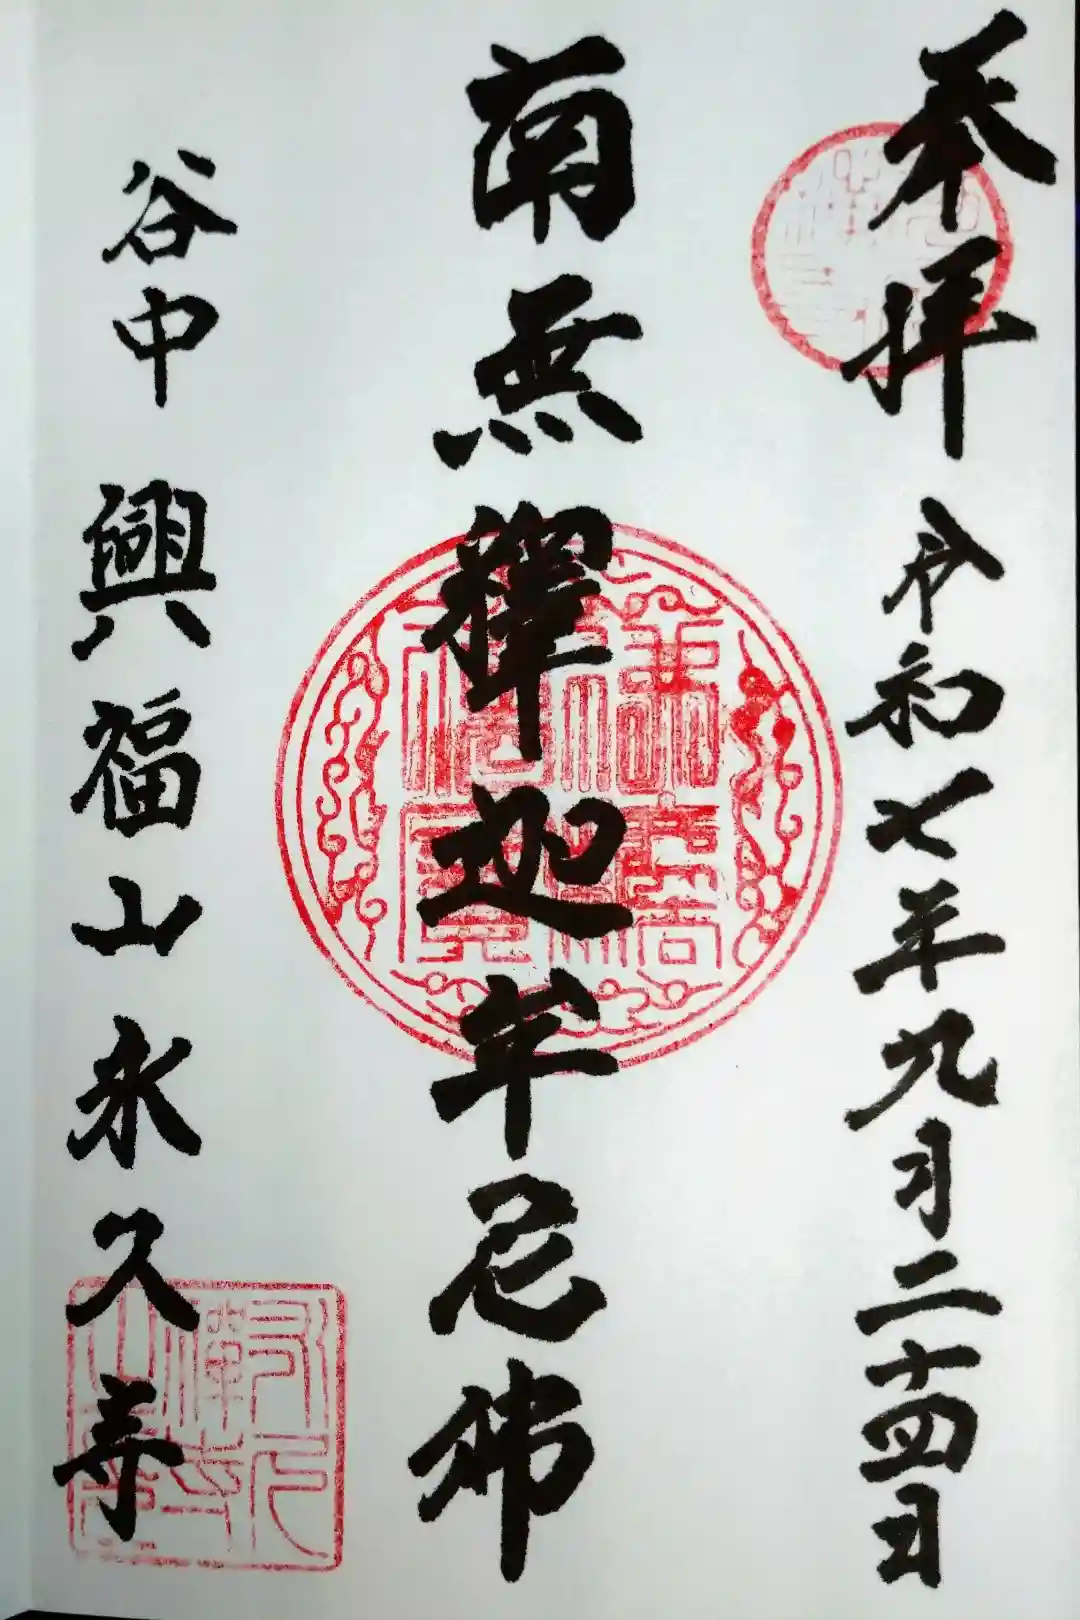 奉拝 令和七年九月二十四日
南無釋迦牟尼佛
谷中 興福山永久寺